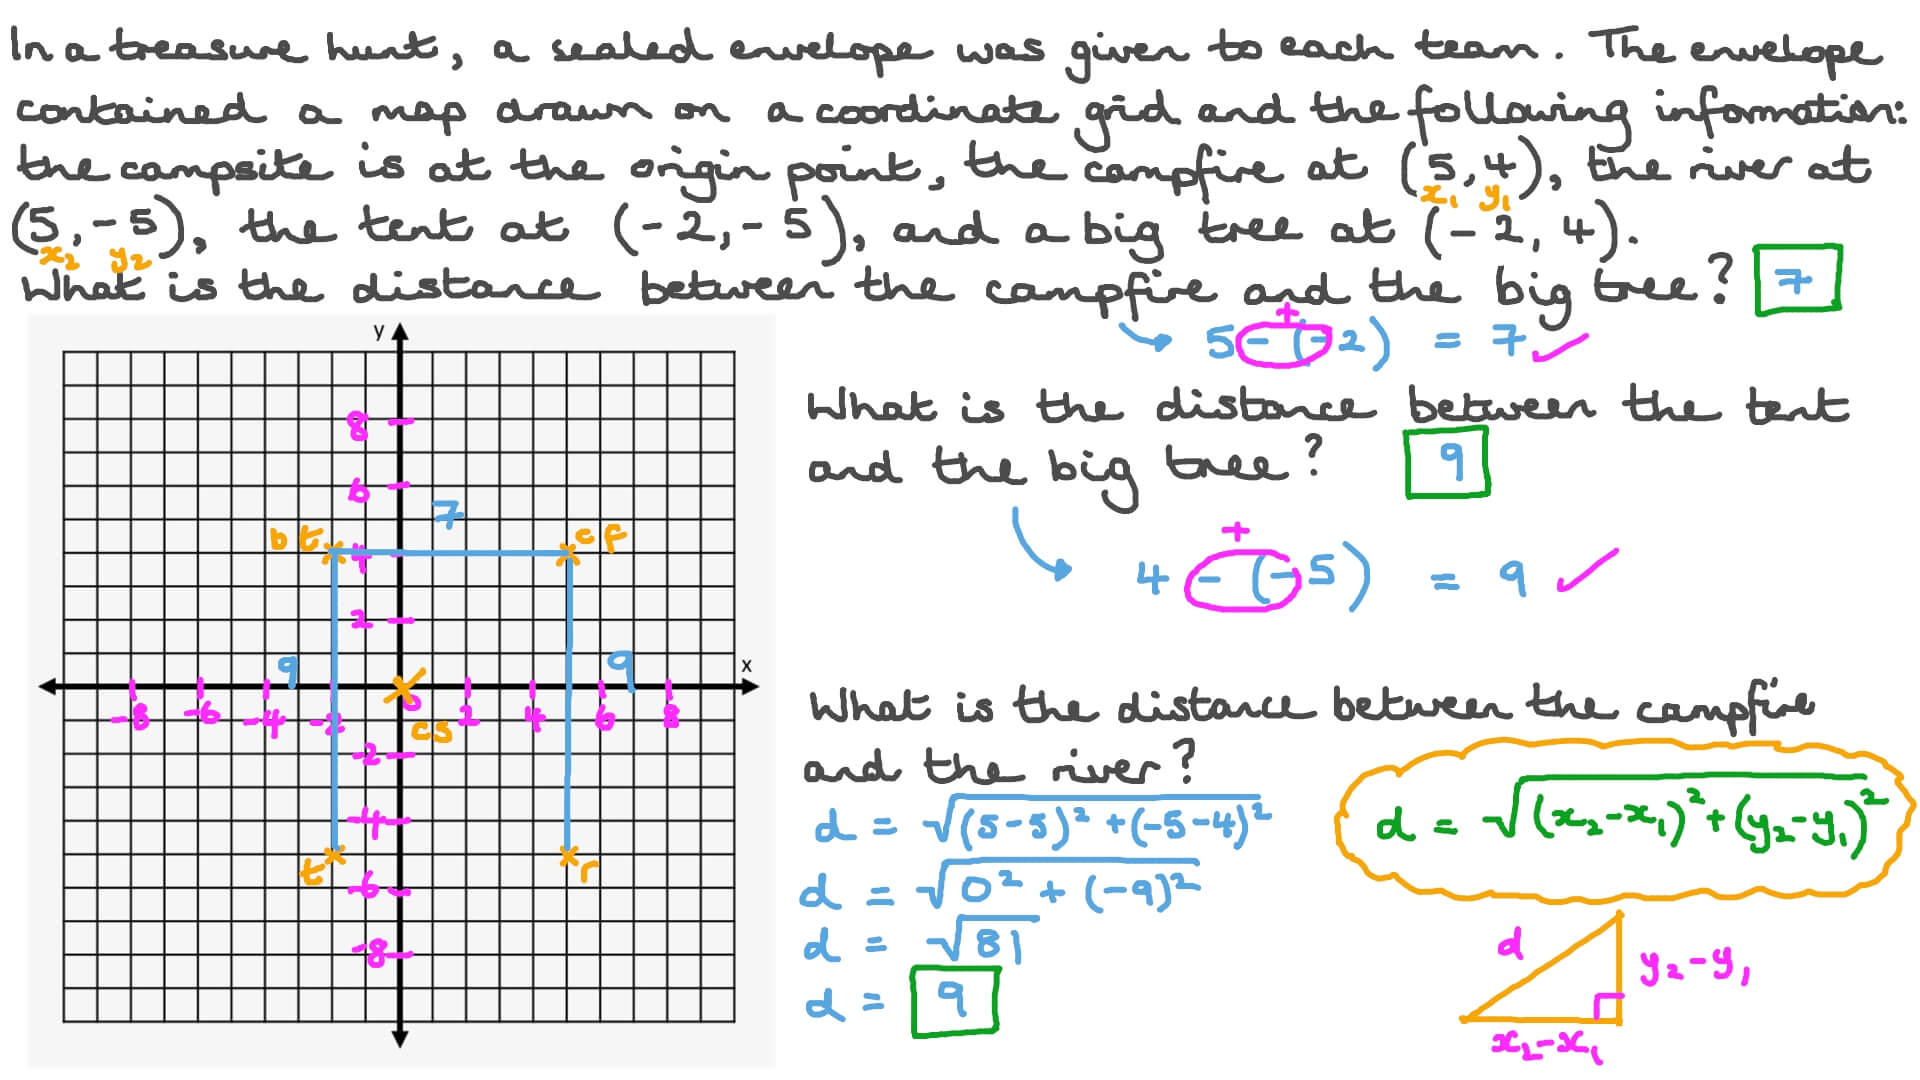 In a treasure hunt, a sealed envelope was given to each team. The envelope
contained a map drawn on a coordinate grid and the following information:
the campsite is at the origin point, the campfire at (5,4), the river at
x₁ y₁
(5,-5), the tent at (-2,-5), and a big tree at (-2,4).
x₂ y₂
What is the distance between the campfire and the big tree? 7
+
5 - (-2) = 7 ✓
What is the distance between the tent
and the big tree? 9
+
4 - (-5) = 9 ✓
What is the distance between the campfire
and the river?
d = √(5-5)² + (-5-4)²
d = √0² + (-9)²
d = √81
d = 9
d = √(x₂-x₁)² + (y₂-y₁)²
d
y₂-y₁
x₂-x₁
y
8
6
7
bt
4
cf
2
9
9
x
-8 -6 -4 -2 0 2 4 6 8
cs
-2
-4
t
r
-6
-8